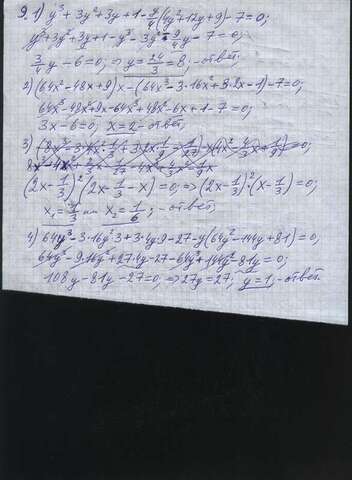 9. 1) y³ + 3y² + 3y + 1 - y/4 (4y² + 12y + 9) - 7 = 0;
y³ + 3y² + 3y + 1 - y³ - 3y² - 9/4 y - 7 = 0;
3/4 y - 6 = 0; ⇒ y = 24/3 = 8; - ответ.
2) (64x² - 48x + 9)x - (64x³ - 3·16x² + 3·2x - 1) - 7 = 0;
64x³ - 48x² + 9x - 64x³ + 48x² - 6x + 1 - 7 = 0;
3x - 6 = 0; x = 2 - ответ.
3)
(2x - 1/3)² (2x - 1/3 - x) = 0; ⇒ (2x - 1/3)² (x - 1/3) = 0;
x₁ = 1/3 или x₂ = 1/6; - ответ
4) 64y³ - 3·16y² 3 + 3·4y 9 - 27 - y(64y² - 144y + 81) = 0;
64y³ - 9·16y² + 27·4y - 27 - 64y³ + 144y² - 81y = 0;
108y - 81y - 27 = 0; ⇒ 27y = 27; y = 1; - ответ